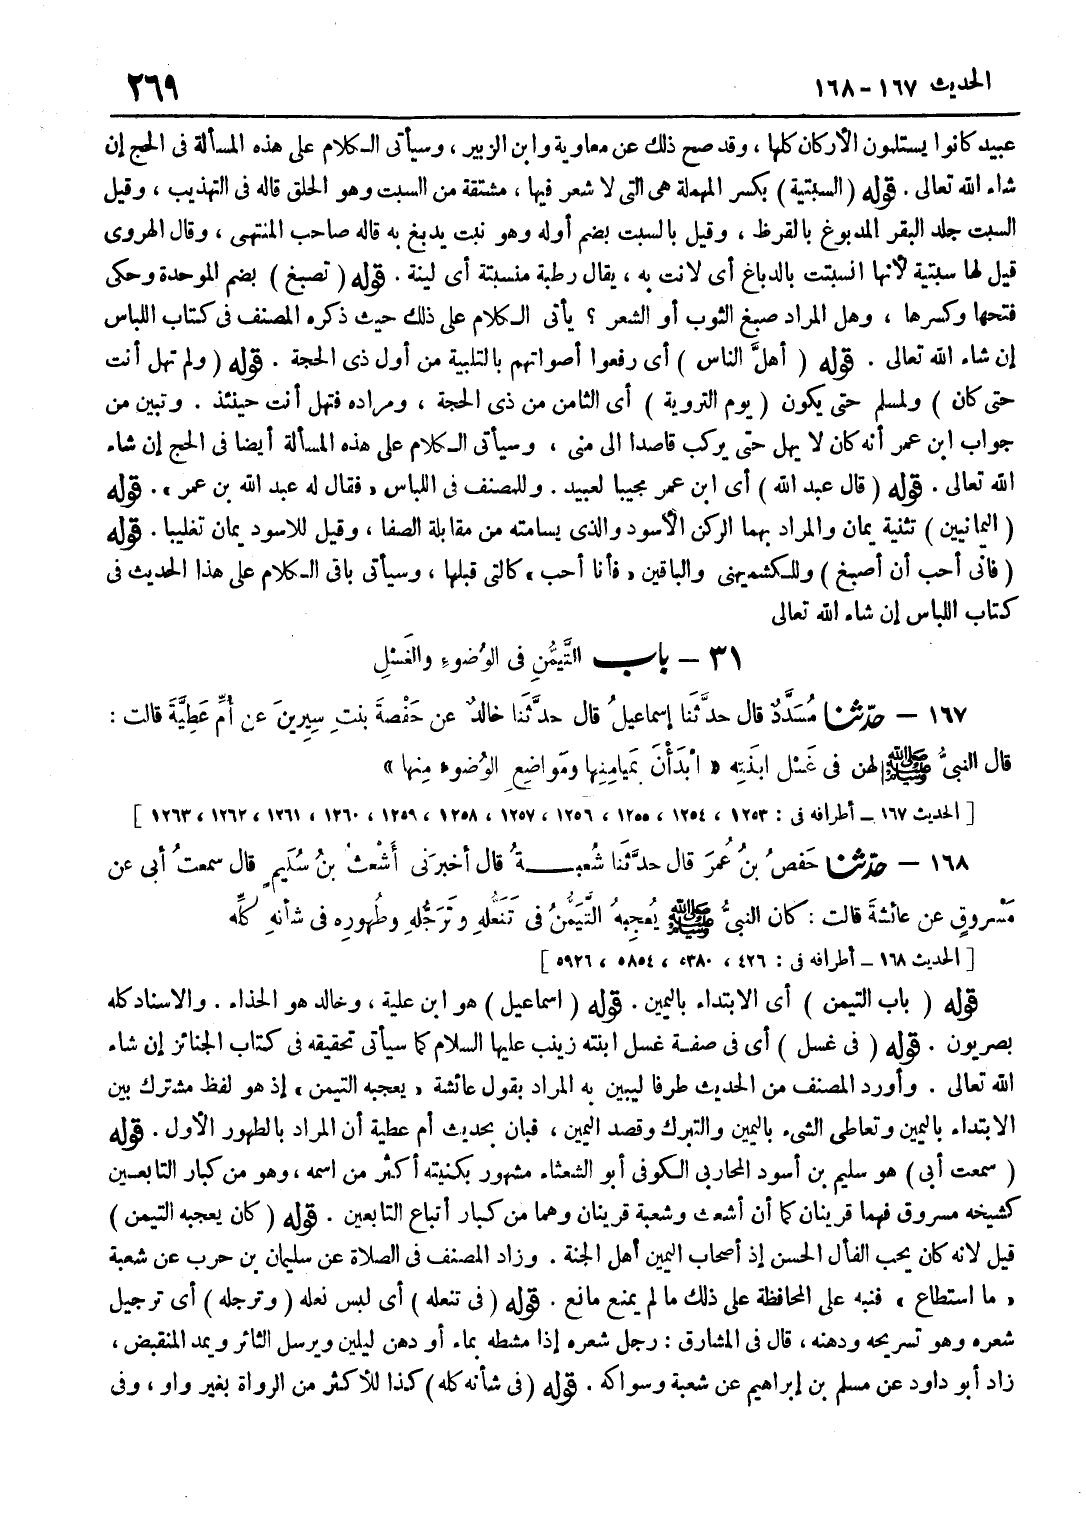 الحديث ١٦٧ - ١٦٨
٢٦٩
عبيد كانوا يستلمون الأركان كلها ، وقد صح ذلك عن معاوية وابن الزبير ، وسيأتى الـكلام على هذه المسألة فى الحج إن
شاء الله تعالى . قوله ( السبتية ) بكسر المهملة هى التى لا شعر فيها ، مشتقة من السبت وهو الحلق قاله فى التهذيب ، وقيل
السبت جلد البقر المدبوغ بالقرظ ، وقيل بالسبت بضم أوله وهو نبت يدبغ به قاله صاحب المنتهى ، وقال الهروى
قيل لها سبتية لأنها انسبتت بالدباغ أى لانت به ، يقال رطبة منسبتة أى لينة . قوله ( تصبغ ) بضم الموحدة وحكى
فتحها وكسرها ، وهل المراد صبغ الثوب أو الشعر ؟ يأتى الـكلام على ذلك حيث ذكره المصنف فى كتاب اللباس
إن شاء الله تعالى . قوله ( أهلَّ الناس ) أى رفعوا أصواتهم بالتلبية من أول ذى الحجة . قوله ( ولم تهل أنت
حتى كان ) ولمسلم حتى يكون ( يوم التروية ) أى الثامن من ذى الحجة ، ومراده فتهل أنت حينئذ . وتبين من
جواب ابن عمر أنه كان لا يهل حتى يركب قاصدا الى منى ، وسيأتى الـكلام على هذه المسألة أيضا فى الحج إن شاء
الله تعالى . قوله ( قال عبد الله ) أى ابن عمر مجيبا لعبيد . وللمصنف فى اللباس « فقال له عبد الله بن عمر » . قوله
( اليمانيين ) تثنية يمان والمراد بهما الركن الأسود والذى يسامته من مقابلة الصفا ، وقيل للاسود يمان تغليبا . قوله
( فانى أحب أن أصبغ ) وللـكشميهنى والباقين « فأنا أحب » كالتى قبلها ، وسيأتى باقى الـكلام على هذا الحديث فى
كتاب اللباس إن شاء الله تعالى
٣١ - باب التَّيَمُّنِ فى الوُضوءِ والغَسْلِ
١٦٧ - حدّثنا مُسَدَّدٌ قال حدَّثَنا إسماعيلُ قال حدَّثَنا خالدٌ عن حَفْصةَ بنتِ سِيرِينَ عن أُمِّ عَطِيَّةَ قالت :
قال النبىُّ ﷺ لهن فى غَسْلِ ابنَتِه « ابْدَأْنَ بمَيامِنِها ومَواضِعِ الوُضوءِ مِنها »
[ الحديث ١٦٧ - أطرافه فى : ١٢٥٣ ، ١٢٥٤ ، ١٢٥٥ ، ١٢٥٦ ، ١٢٥٧ ، ١٢٥٨ ، ١٢٥٩ ، ١٢٦٠ ، ١٢٦١ ، ١٢٦٢ ، ١٢٦٣ ]
١٦٨ - حدّثنا حَفصُ بنُ عُمرَ قال حدَّثَنا شُعبــةُ قال أخبرَنى أَشْعَثُ بنُ سُلَيمٍ قال سمعتُ أبى عن
مَسْروقٍ عن عائشةَ قالت : كان النبىُّ ﷺ يُعجِبهُ التَّيَمُّنُ فى تَنَعُّلهِ وتَرَجُّلهِ وطُهورِه فى شأنهِ كلِّه
[ الحديث ١٦٨ - أطرافه فى : ٤٢٦ ، ٥٣٨٠ ، ٥٨٥٤ ، ٥٩٢٦ ]
قوله ( باب التيمن ) أى الابتداء باليمين . قوله ( اسماعيل ) هو ابن علية ، وخالد هو الحذاء . والاسناد كله
بصريون . قوله ( فى غسل ) أى فى صفة غسل ابنته زينب عليها السلام كما سيأتى تحقيقه فى كتاب الجنائز إن شاء
الله تعالى . وأورد المصنف من الحديث طرفا ليبين به المراد بقول عائشة « يعجبه التيمن » إذ هو لفظ مشترك بين
الابتداء باليمين وتعاطى الشىء باليمين والتبرك وقصد اليمين ، فبان بحديث أم عطية أن المراد بالطهور الأول . قوله
( سمعت أبى ) هو سليم بن أسود المحاربى الكوفى أبو الشعثاء مشهور بكنيته أكثر من اسمه ، وهو من كبار التابعـين
كشيخه مسروق فهما قرينان كما أن أشعث وشعبة قرينان وهما من كبار أتباع التابعين . قوله ( كان يعجبه التيمن )
قيل لانه كان يحب الفأل الحسن إذ أصحاب اليمين أهل الجنة . وزاد المصنف فى الصلاة عن سليمان بن حرب عن شعبة
« ما استطاع » فنبه على المحافظة على ذلك ما لم يمنع مانع . قوله ( فى تنعله ) أى لبس نعله ( وترجله ) أى ترجيل
شعره وهو تسريحه ودهنه ، قال فى المشارق : رجل شعره إذا مشطه بماء أو دهن ليلين ويرسل الثائر ويمد المنقبض ،
زاد أبو داود عن مسلم بن إبراهيم عن شعبة وسواكه . قوله ( فى شأنه كله ) كذا للأكثر من الرواة بغير واو ، وفى